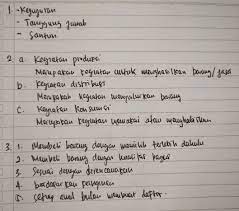 1. - Kejujuran
- Tanggung jawab
- Santun
2. a. Kegiatan produksi
Merupakan kegiatan untuk menghasilkan barang/jasa
b. Kegiatan distribusi
Merupakan kegiatan menyalurkan barang
c. Kegiatan konsumsi
Merupakan kegiatan memakai atau menghabiskan
3. 1. Membeli barang dengan memilih terlebih dahulu
2. Membeli barang dengan kualitas bagus
3. Sesuai dengan
4. berdasarkan
5. setiap membuat daftar.